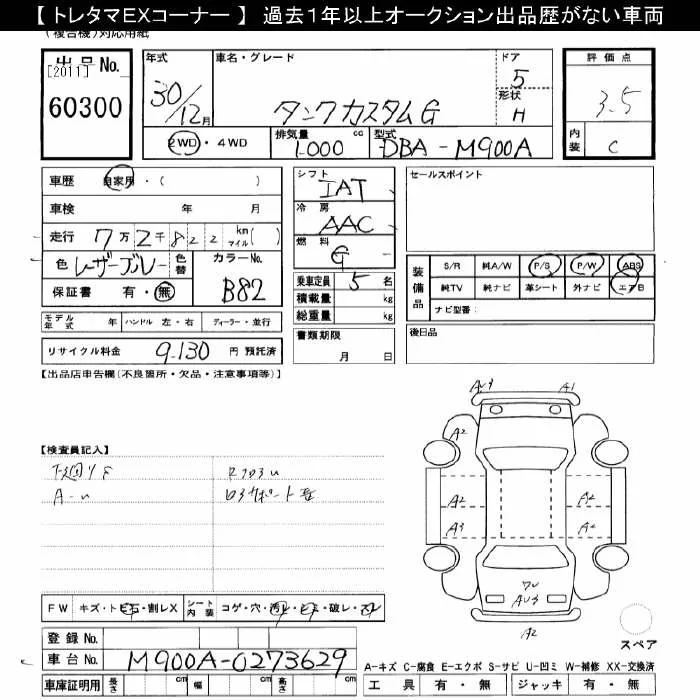 【 トレタマEXコーナー 】 過去1年以上オークション出品歴がない車両
(複合機)対応用紙
出品 No.
[2011]
60300
年式
30/12月
車名・グレード
タンクカスタムG
ドア
5
形状
H
2WD・4WD
排気量 1000 cc
型式 DBA-M900A
評価点
3.5
内装 C
車歴 自家用・( )
車検 年 月
走行 7万2千822 km マイル( )
色 レーザーブルー 色替 カラーNo. B82
保証書 有・無
モデル年式 年 ハンドル 左・右 ディーラー・並行
リサイクル料金 9,130 円 預託済
シフト
IAT
冷房
AAC
燃料
G
乗車定員 5 名
積載量 kg
総重量 kg
書類期限
月 日
セールスポイント
装備品
S/R 純A/W P/S P/W ABS
純TV 純ナビ 革シート 外ナビ エアB
ナビ型番:
後日品
【出品店申告欄(不良箇所・欠品・注意事項等)】
【検査員記入】
下廻りS
A-u
A3 A1
A2
A2 A2
A3 A2
AU3
A2
FW キズ・トビ石・割レX シート内装 コゲ・穴・汚レ・シミ・破レ・スレ
登録 No.
車台 No. M900A-0273629
車庫証明用 長さ cm 幅 cm 高さ cm
スペア
A-キズ C-腐食 E-エクボ S-サビ U-凹ミ W-補修 XX-交換済
工具 有・無 ジャッキ 有・無